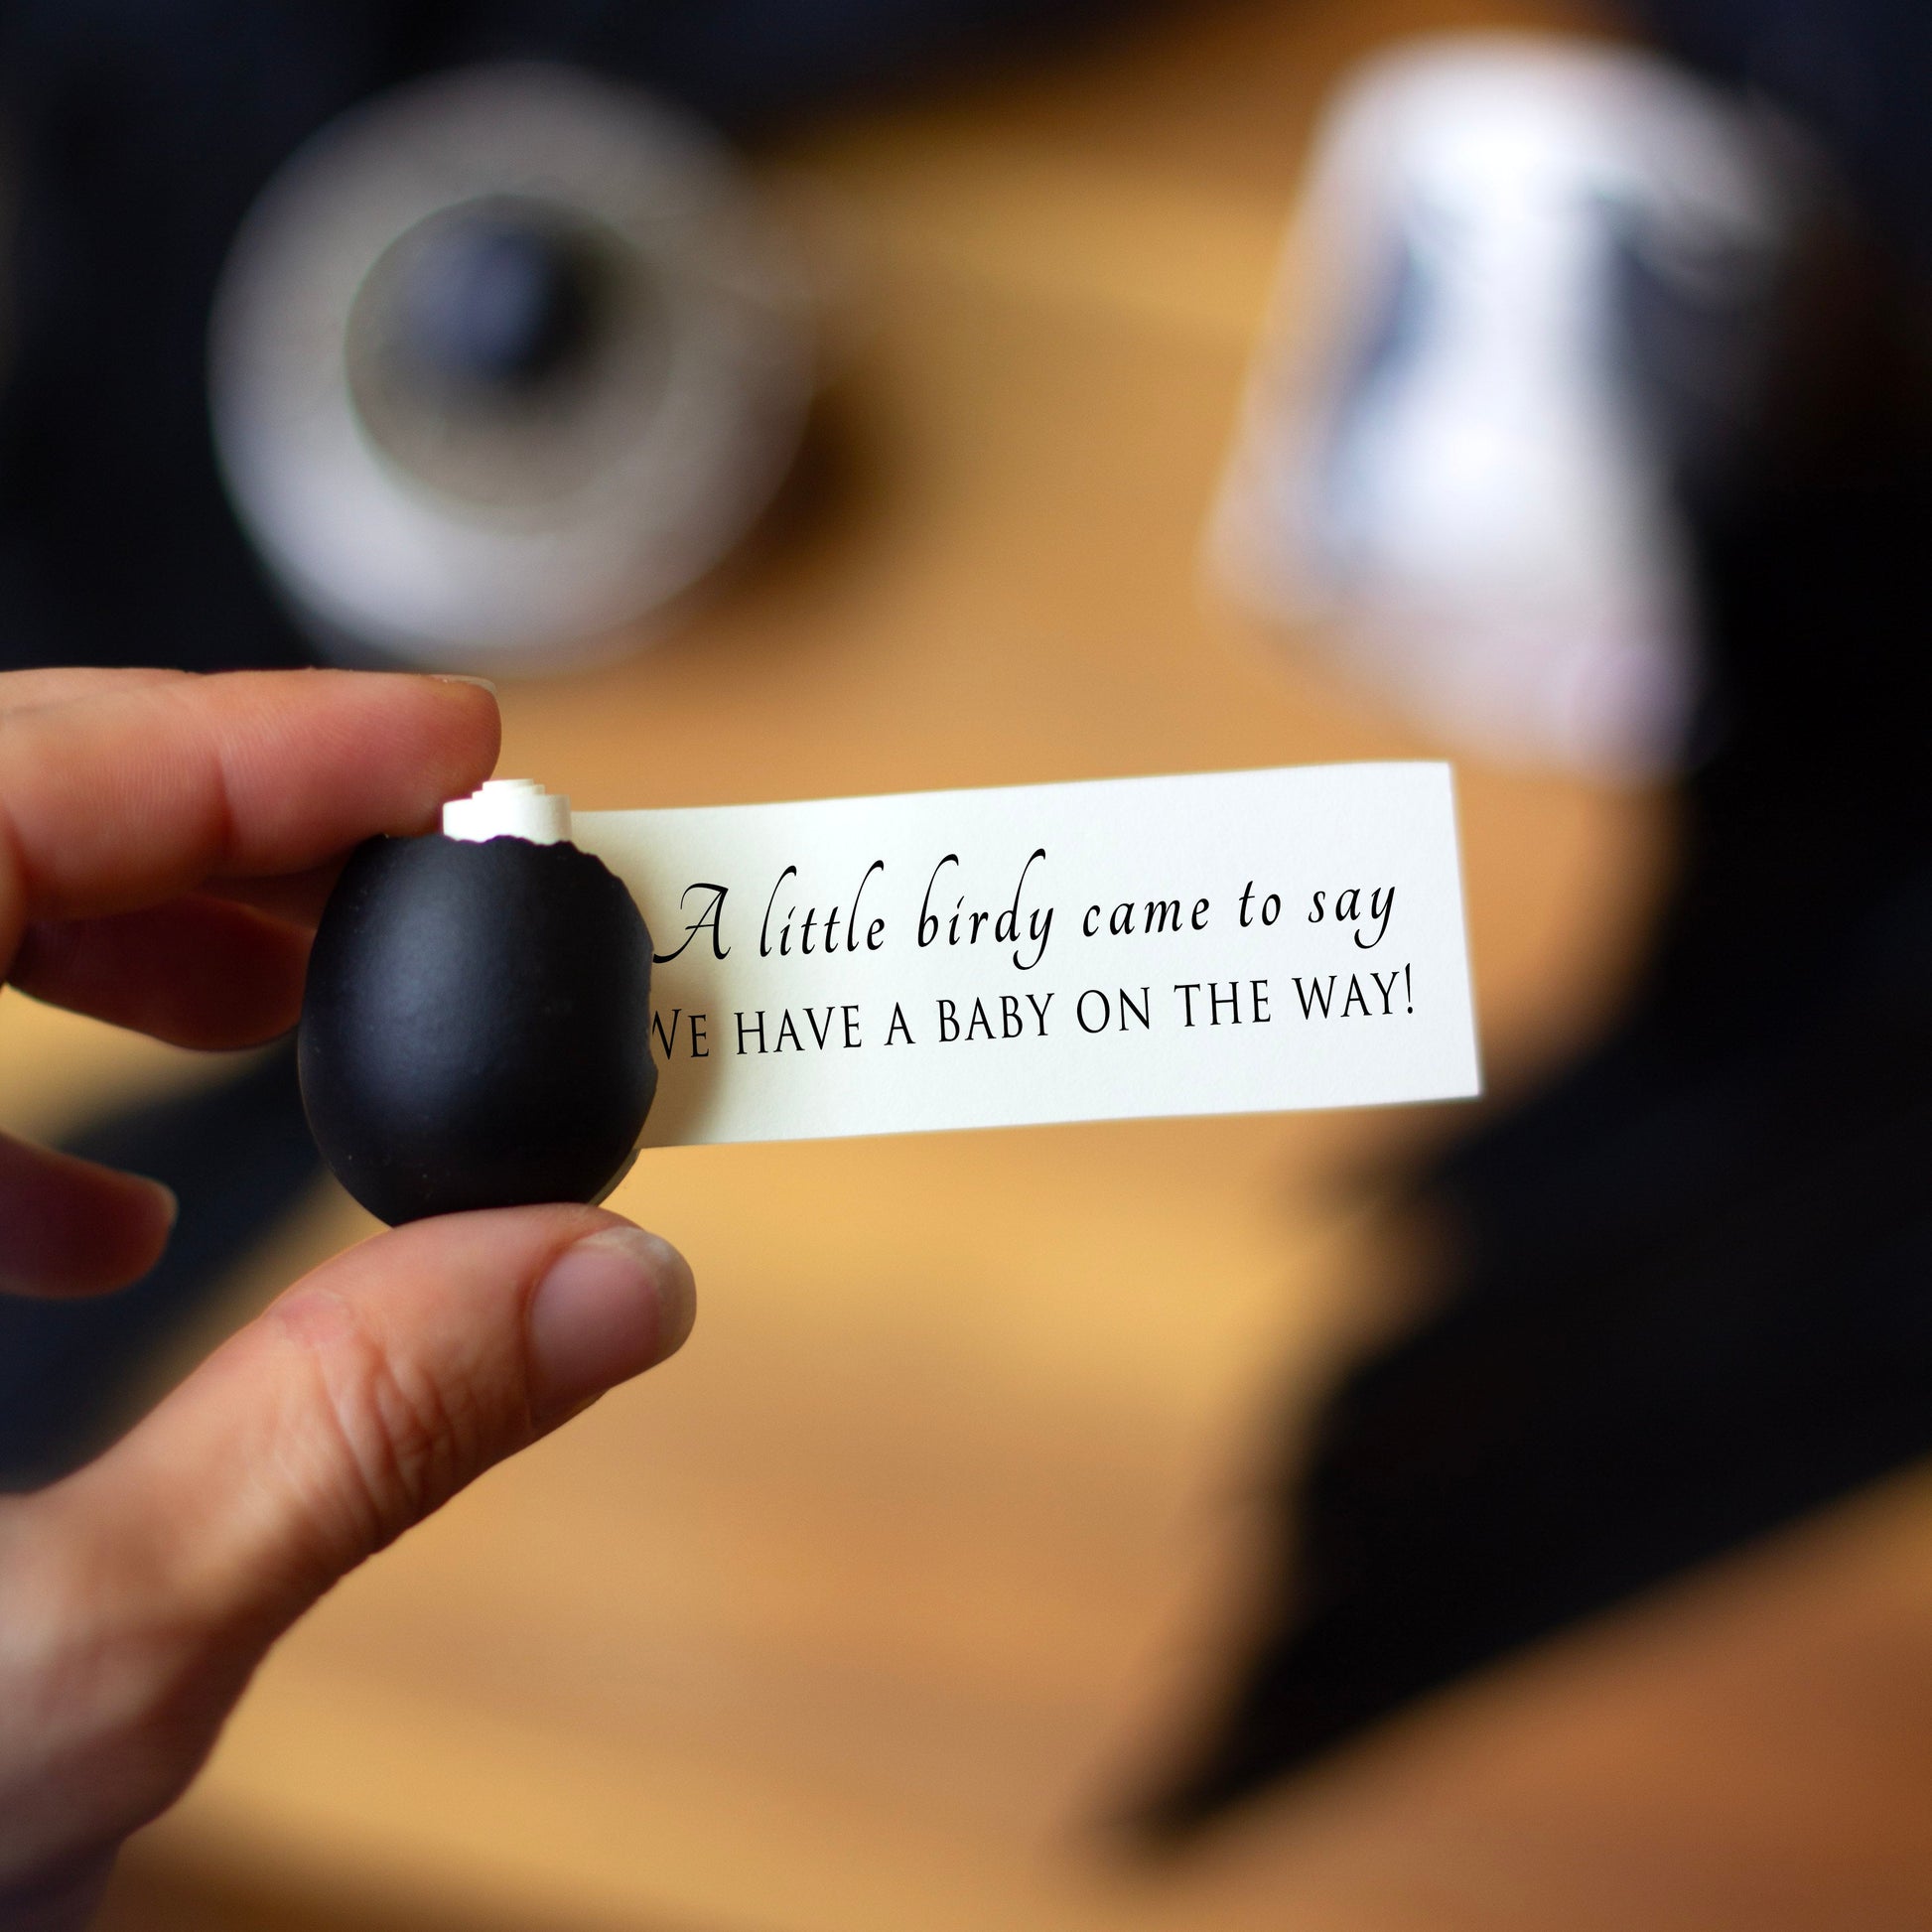 A little birdy came to say
WE HAVE A BABY ON THE WAY!